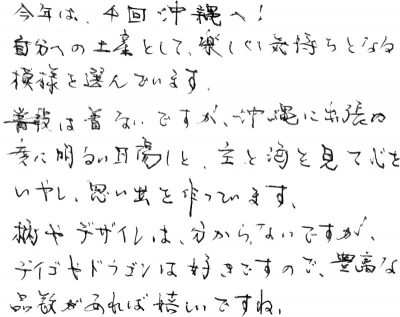 今年は、4回沖縄へ!
自分への土産として、楽しく気持ちとなる
模様を選んでいます。
普段は着ないですが、沖縄に出張の
度に明るい日陽しと、空と海を見て心を
いやし、思い出を作っています。
柄やデザインは、分からないですが、
デイゴやドラゴンは好きですので、豊富な
品数があれば嬉しいですね。